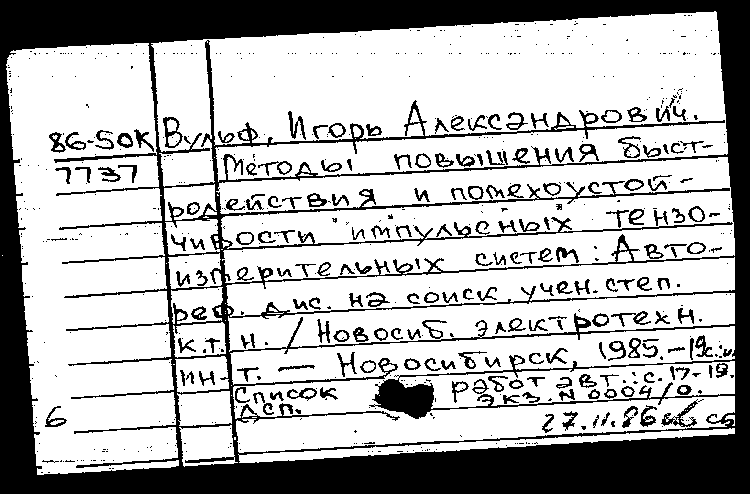 86-50К Вульф, Игорь Александрович.
7737 Методы повышения быст-
родействия и помехоустой-
чивости импульсных тензо-
измерительных систем: Авто-
реф. дис. на соиск. учен. степ.
к.т.н. / Новосиб. электротехн.
ин-т. — Новосибирск, 1985. - 19с.:ил
Список работ авт.: с. 17-19.
Дсп. Экз. N 0004/0.
6 27.11.86 сб